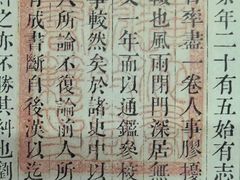 年二十有五始有志
率盡一卷人事膠擾
也風雨閉門深居無
文一年而以通鑑參
事較然矣於諸史中以
人所論不復論前人所
有成書斷自後漢以迄
之亦不勝其糾也劉